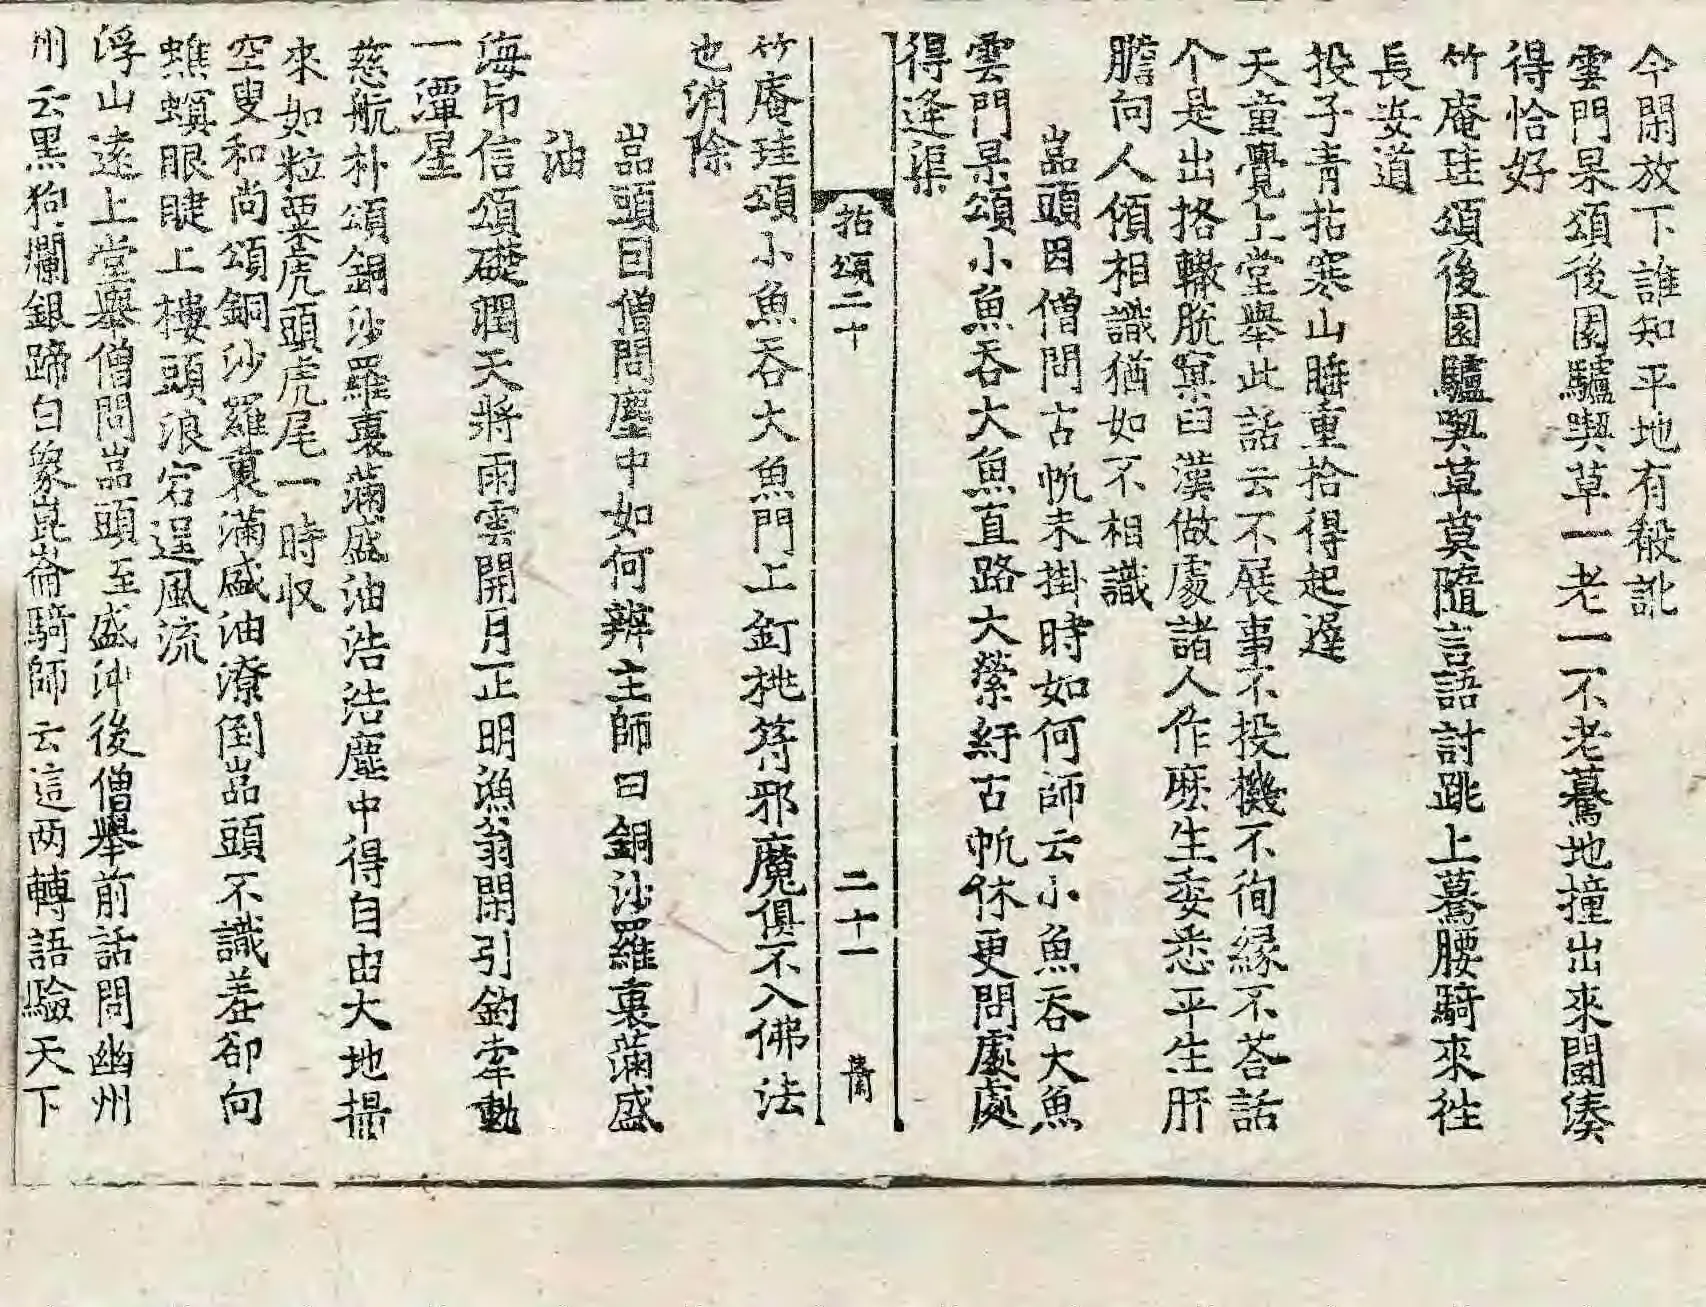 今閑放下誰知平地有殽訛
雲門杲頌後園驢喫草一老一不老驀地撞出來鬧湊
得恰好
竹庵珪頌後園驢喫草莫隨言語討跳上驀腰騎來徃
長安道
投子青拈寒山睡重拾得起遲
天童覺上堂舉此話云不展事不投機不徇緣不荅話
个是出挌轍脫窠臼漢做處諸人作麽生委悉平生肝
膽向人傾相識猶如不相識
嵓頭因僧問古帆未掛時如何師云小魚吞大魚
雲門杲頌小魚吞大魚直路大縈紆古帆休更問處處
得逢渠
拈頌二十 二十一
竹庵珪頌小魚吞大魚門上釘桃符邪魔俱不入佛法
也消除
嵓頭因僧問塵中如何辨主師曰銅沙羅裏滿盛
油
海印信頌礎潤天將雨雲開月正明漁翁閑引釣牽動
一潭星
慈航朴頌銅沙羅裏滿盛油浩浩塵中得自由大地撮
來如粒粟虎頭虎尾一時収
空叟和尚頌銅沙羅裏滿盛油潦倒嵓頭不識羞卻向
蟭螟眼睫上樓頭浪宕逞風流
浮山遠上堂舉僧問嵓頭至盛油後僧舉前話問幽州
州云黑狗爛銀蹄白象崑崙騎師云這两轉語驗天下